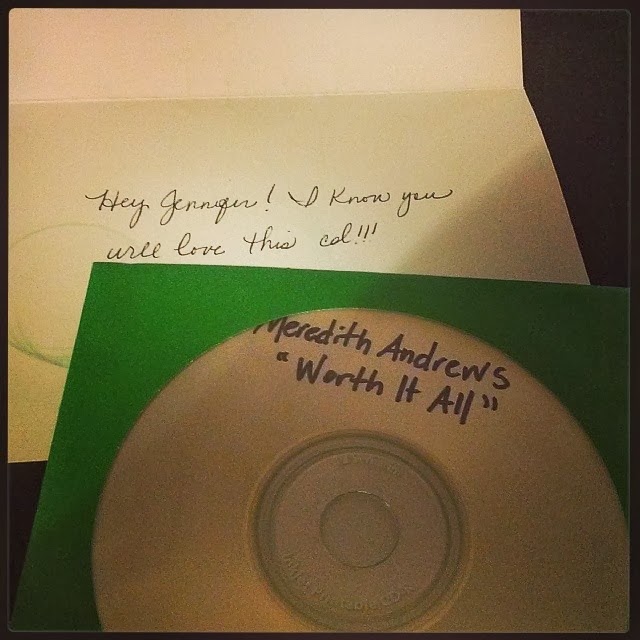 Hey Jennifer! I Know you
will love this cd!!!
Meredith Andrews
"Worth It All"